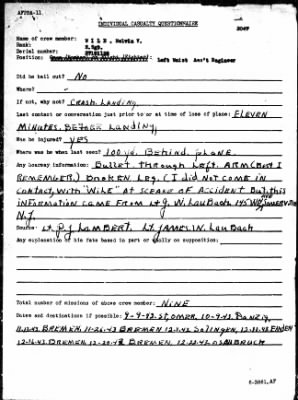 AFPPA-11
INDIVIDUAL CASUALTY QUESTIONNAIRE
Name of crew member: WILE, Melvin V.
Rank: S.Sgt.
Serial number:
Position: Left Waist Ass't Engineer
Did he bail out? NO
Where?
If not, why not? CRASH LANDING
Last contact or conversation just prior to or at time of loss of plane: ELEVEN
MINUTES BEFORE LANDING
Was he injured? YES
Where was he when last seen? 100 yd. BEHIND PLANE
Any hearsay information: BULLET THROUGH LEFT ARM (BEST I
REMEMBER) BROKEN LEG. (I DID NOT COME IN
CONTACT WITH "WILE" AT SCEANE OF ACCIDENT BUT THIS
INFORMATION CAME FROM Lt J. W. LAUBACH, 145
N.J.
Source: Lt. P.J. LAMBERT. Lt. JAMES W. LAUBACH
Any explanation of his fate based in part or wholly on supposition:
Total number of missions of above crew member: NINE
Dates and destinations if possible: ST. OMER, 10-9-43. DANZIG,
BREMEN, 11-26-43 BREMEN SOLINGEN, EMDEN
12-16-43 BREMEN BREMEN, OSNABRUCK
6-3861,AF